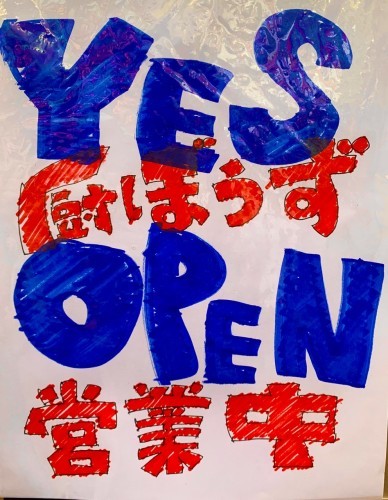 YES
厨ぼうず
OPEN
営業中